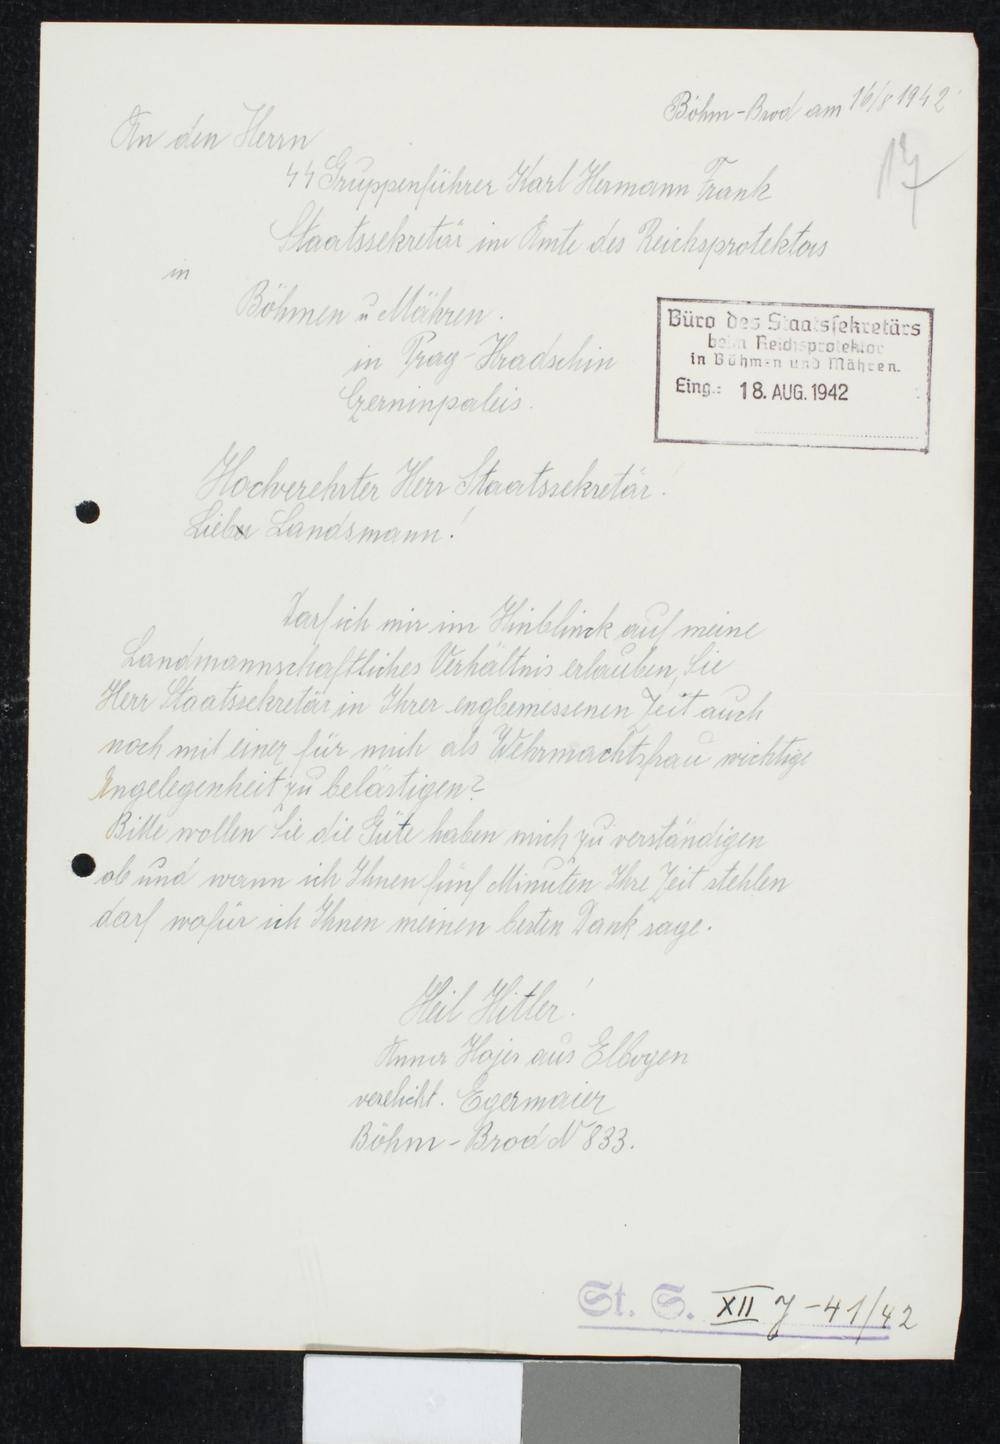 Böhm-Brod am 16/8 1942
17
An den Herrn
SS Gruppenführer Karl Hermann Frank
Staatssekretär im Amte des Reichsprotektors
in
Böhmen u Mähren.
in Prag-Hradschin
Czerninpaleis.
Büro des Staatssekretärs
beim Reichsprotektor
in Böhmen und Mähren.
Eing.: 18. AUG. 1942
Hochverehrter Herr Staatssekretär!
Lieber Landsmann!
Darf ich mir im Hinblinck auf meine
Landmannschaftliches Verhältnis erlauben, Sie
Herr Staatssekretär in Ihrer engbemessenen Zeit auch
noch mit einer für mich als Wehrmachtsfrau wichtige
Angelegenheit zu belästigen?
Bitte wollen Sie die Güte haben mich zu verständigen
ob und wann ich Ihnen fünf Minuten Ihre Zeit stehlen
darf wofür ich Ihnen meinen besten Dank sage.
Heil Hitler!
Anna Hojer aus Elbogen
verelicht. Egermaier
Böhm-Brod N 833.
St. S. XII J-41/42